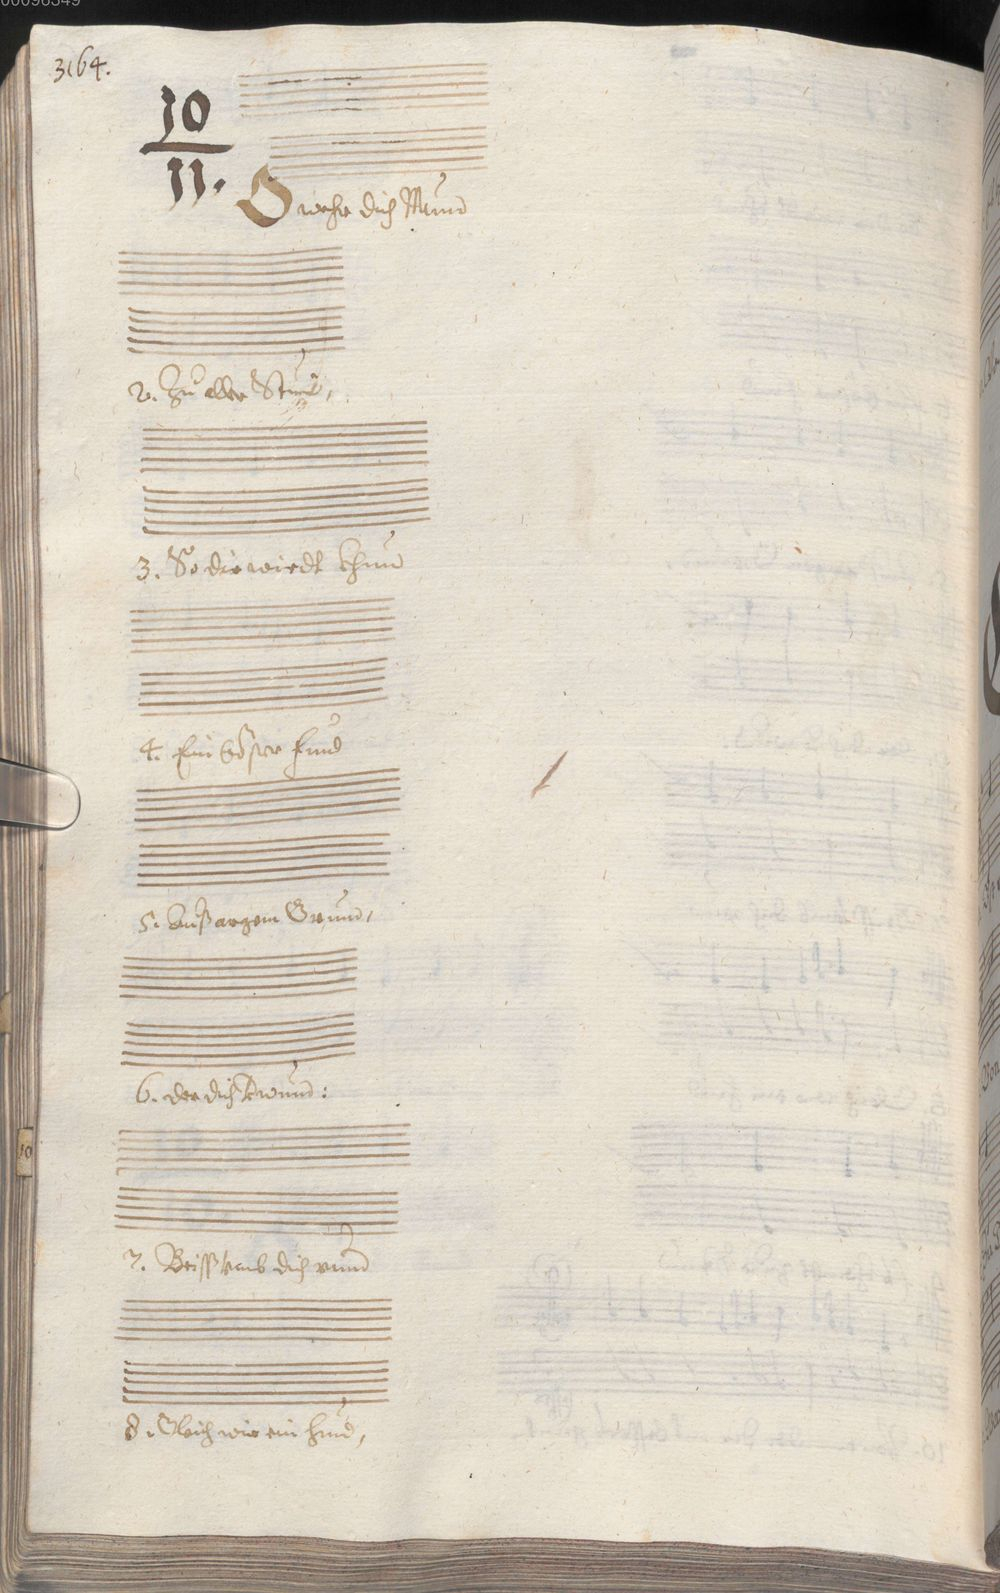 3164.
10
11.
O wehr dich Mund
2. Zu aller Stund,
3. So dir wirdt khund
4. Ein böser fund
5. Auß argem Grund,
6. der dich
7. Beiß umb dich rund
8. Gleich wie ein hund,
10